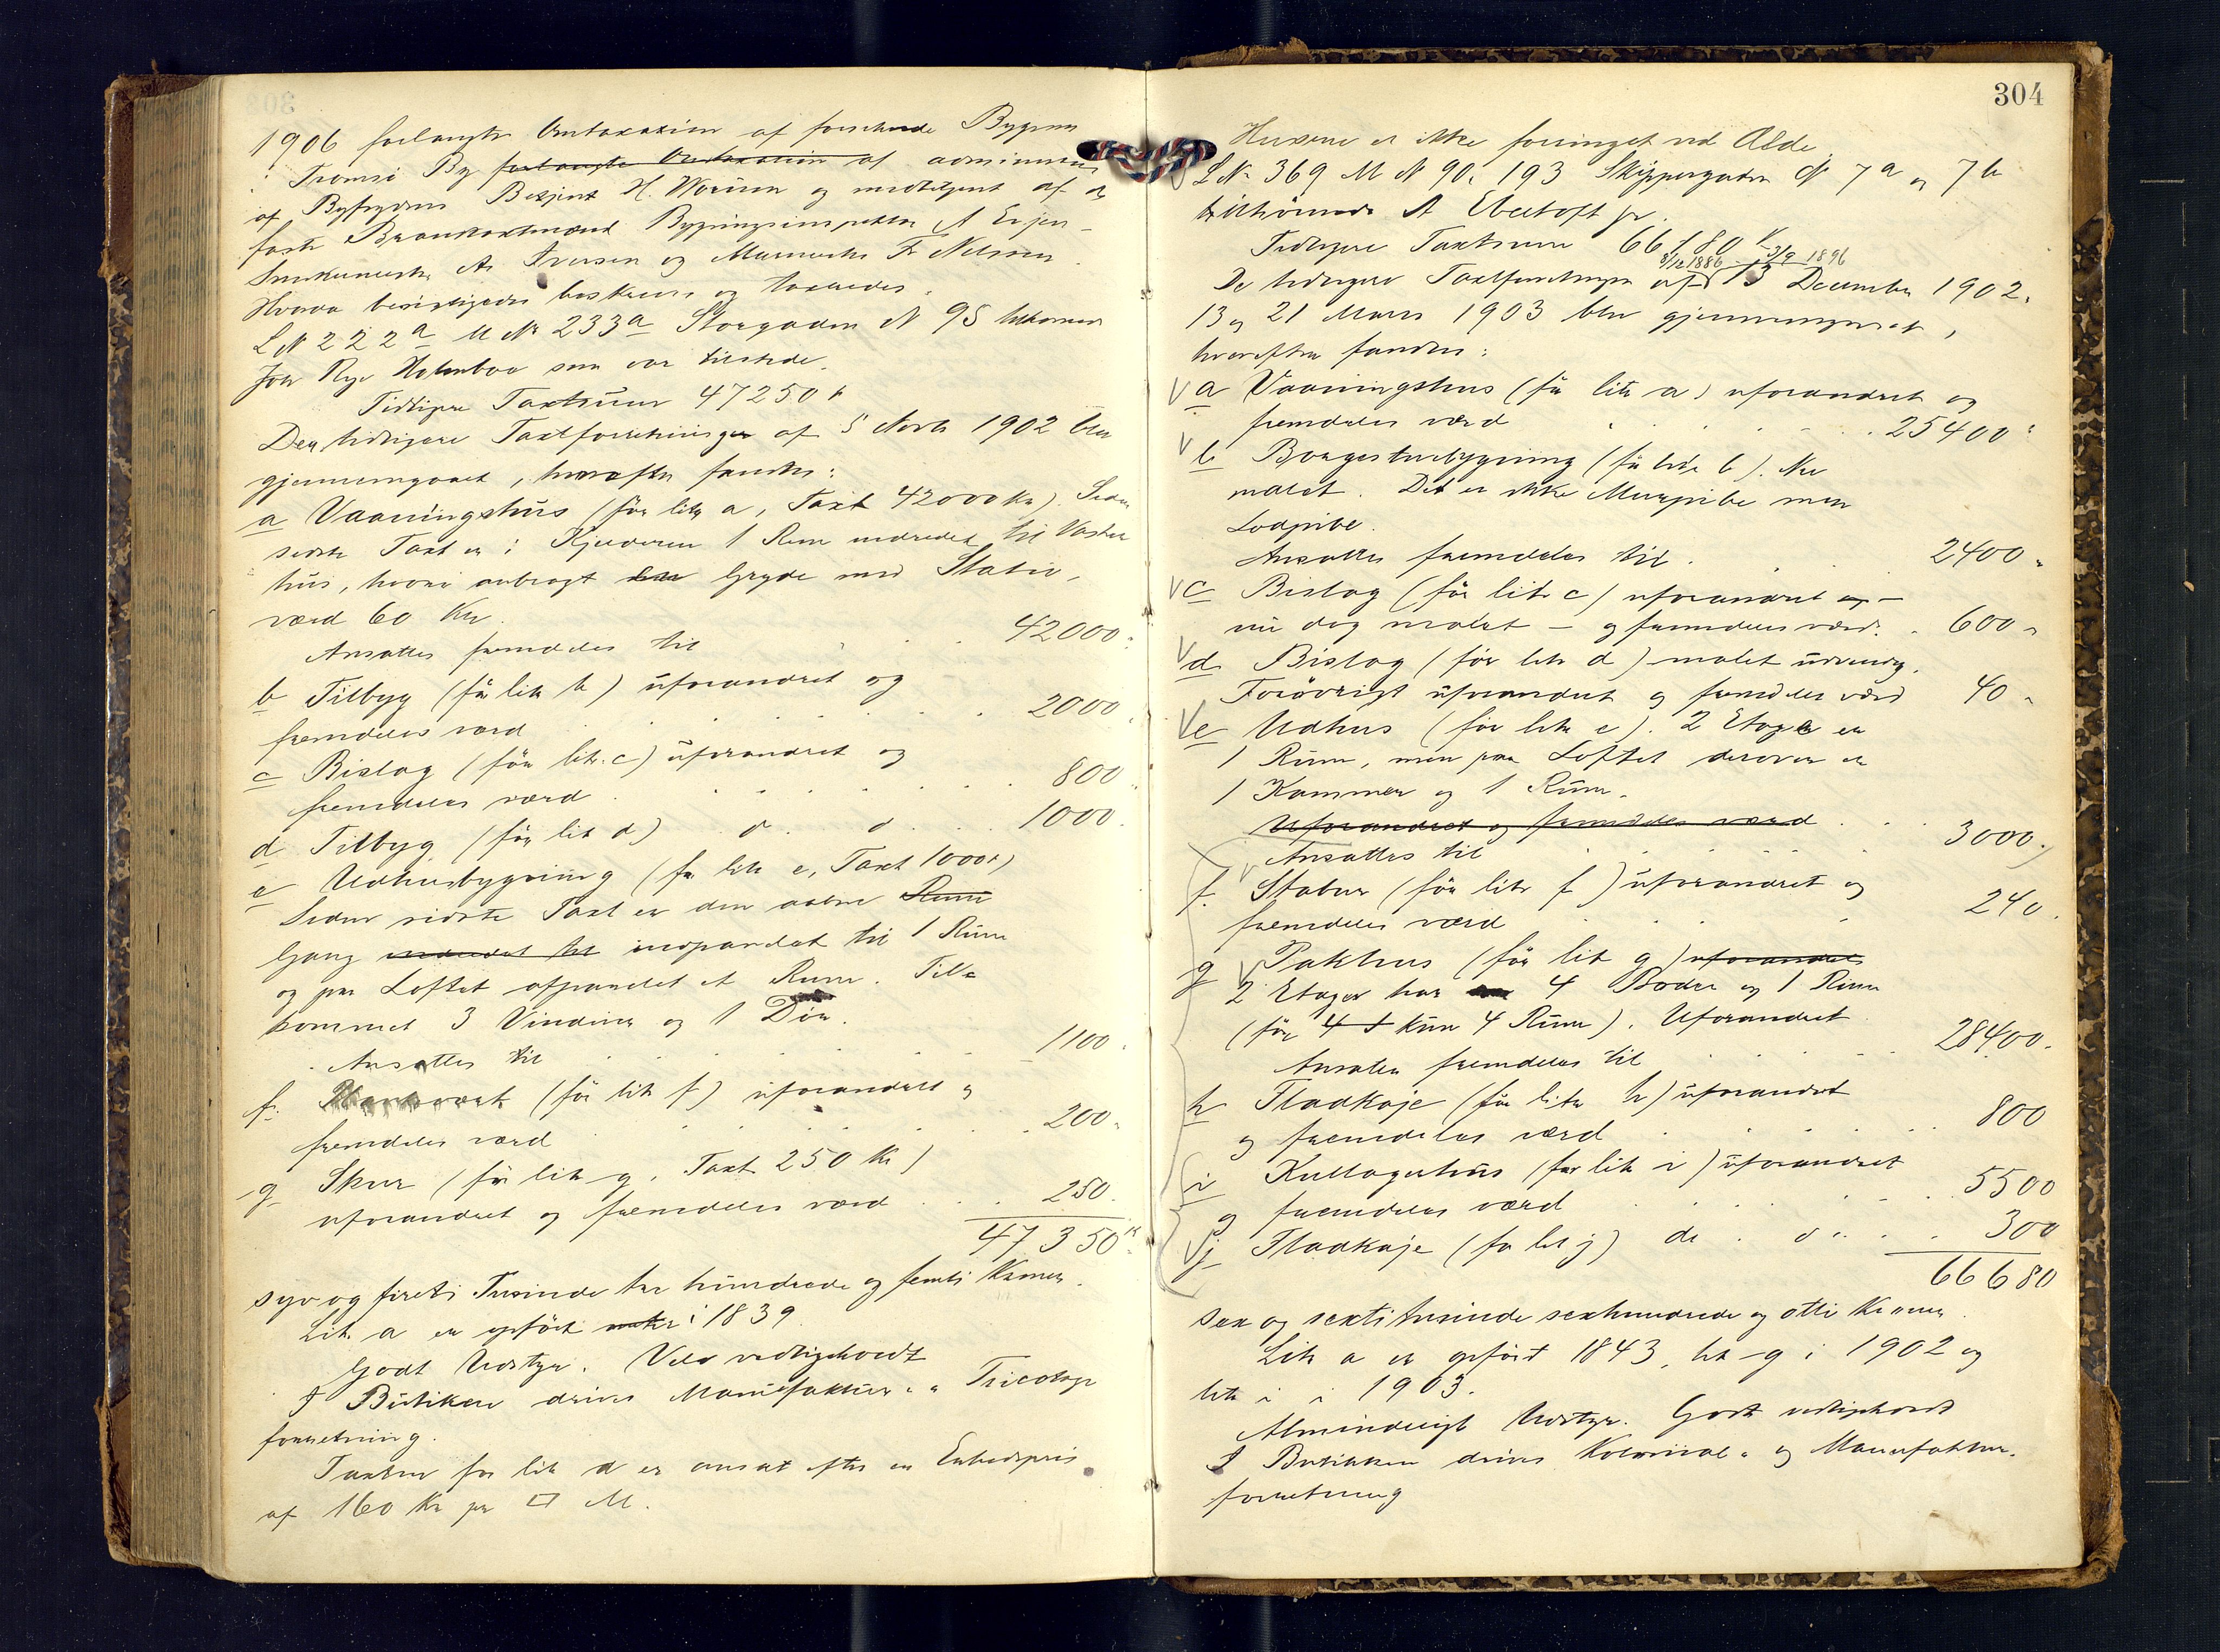 1906 forlangte Omtaxation af forskjellige Bygninger
i Tromsö By forlangte Omtaxation af administreret
af Byfogdens Betjent H. Worum og medbetjent af de
faste Brandtaxtmænd Bygningsinspektør A Evjen
Snekermester As Iversen og Murmester Fr Nelson.
Hvorda besigtigedes beskreves og taxeredes.
L № 222a M № 233a Storgaden № 95 tilhørende
Joh Rye Holmboe som var tilstede.
Tidligere Taxtsum 47250 k
Den tidligere Taxtforretninger af 5 Novbr 1902 blev
gjennemgaaet, hvorefter fandtes:
a Vaaningshus (før litr a, Taxt 42000 Kr) Siden
sidste Taxt er i Kjelderen 1 Rum indredet til Vaske
hus, hvori anbragt Gryde med Stativ,
værd 60 Kr.
Ansattes fremdeles til 42000.
b Tilbyg (før litr b) uforandret og
fremdeles værd 2000.
c Bislag (før litr. c) uforandret og
fremdeles værd 800.
d Tilbyg (før litr d) do. do. 1000.
e Udhusbygning (før litr e, Taxt 1000 k)
Siden sidste Taxt er den aabne Rum
Gang indredet til indpandet til 1 Rum
og paa Loftet afpandet et Rum. Til-
kommet 3 Vinduer og 1 Dør.
Ansattes til 1100.
f. (før litr f) uforandret og
fremdeles værd 200.
g Skur (før litr g. Taxt 250 Kr)
uforandret og fremdeles værd 250.
47350 k
syv og fireti Tusinde tre hundrede og femti Kroner.
Litr a er opført i 1839.
Godt Udstyr. Vel vedligeholdt
I Butiken drives Manufaktur- & Tricotage
forretning.
Taxten for litr d er ansat efter en Enhedspris
af 160 Kr pr □ M.
304
Husene er ikke forringet ved Ælde
L № 369 M № 90, 193 Skippergaden № 7a og 7b
tilhørende A Ebeltoft jr.
Tidligere Taxtsum 66180 K
8/12 1886 3/9 1896
De tidligere Taxtforretninger af 13 December 1902,
13 og 21 Mars 1903 blev gjennemgaaet,
hvorefter fandtes:
a Vaaningshus (før litr a) uforandret og
fremdeles værd 25400
b Borgestuebygning (før litr b). Nu
malet. Det er ikke Murpibe men
Lodpibe.
Ansattes fremdeles til 2400
c Bislag (før litr c) uforandret og -
nu dog malet - og fremdeles værd. 600
d Bislag (før litr d) malet udvendig.
Forøvrigt uforandret og fremdeles værd 40
e Udhus (før litr e). 2 Etage er
1 Rum, men paa Loftet derover er
1 Kammer og 1 Rum.
Uforandret og fremdeles værd
Ansattes til 3000.
f. Stabur (før litr f) uforandret og
fremdeles værd 240.
g Pakhus (før lit g) uforandret
2 Etager har 4 Boder og 1 Rum
(før kun 4 Rum). Uforandret
Ansatees fremdeles til 28400.
h Fladkaje (før litr h) uforandret
og fremdeles værd 800
i Kullagerhus (før litr i) uforandret
og fremdeles værd 5500
j Fladkaje (før lit j) do. do. 300
66680
Sex og sexti tusinde sexhundrede og otti Kroner.
Litr a er opført 1843, litr g i 1902 og
litr i i 1903.
Almindeligt Udstyr. Godt vedligeholdt
I Butikken drives Kolonial- og Manufaktur-
forretning